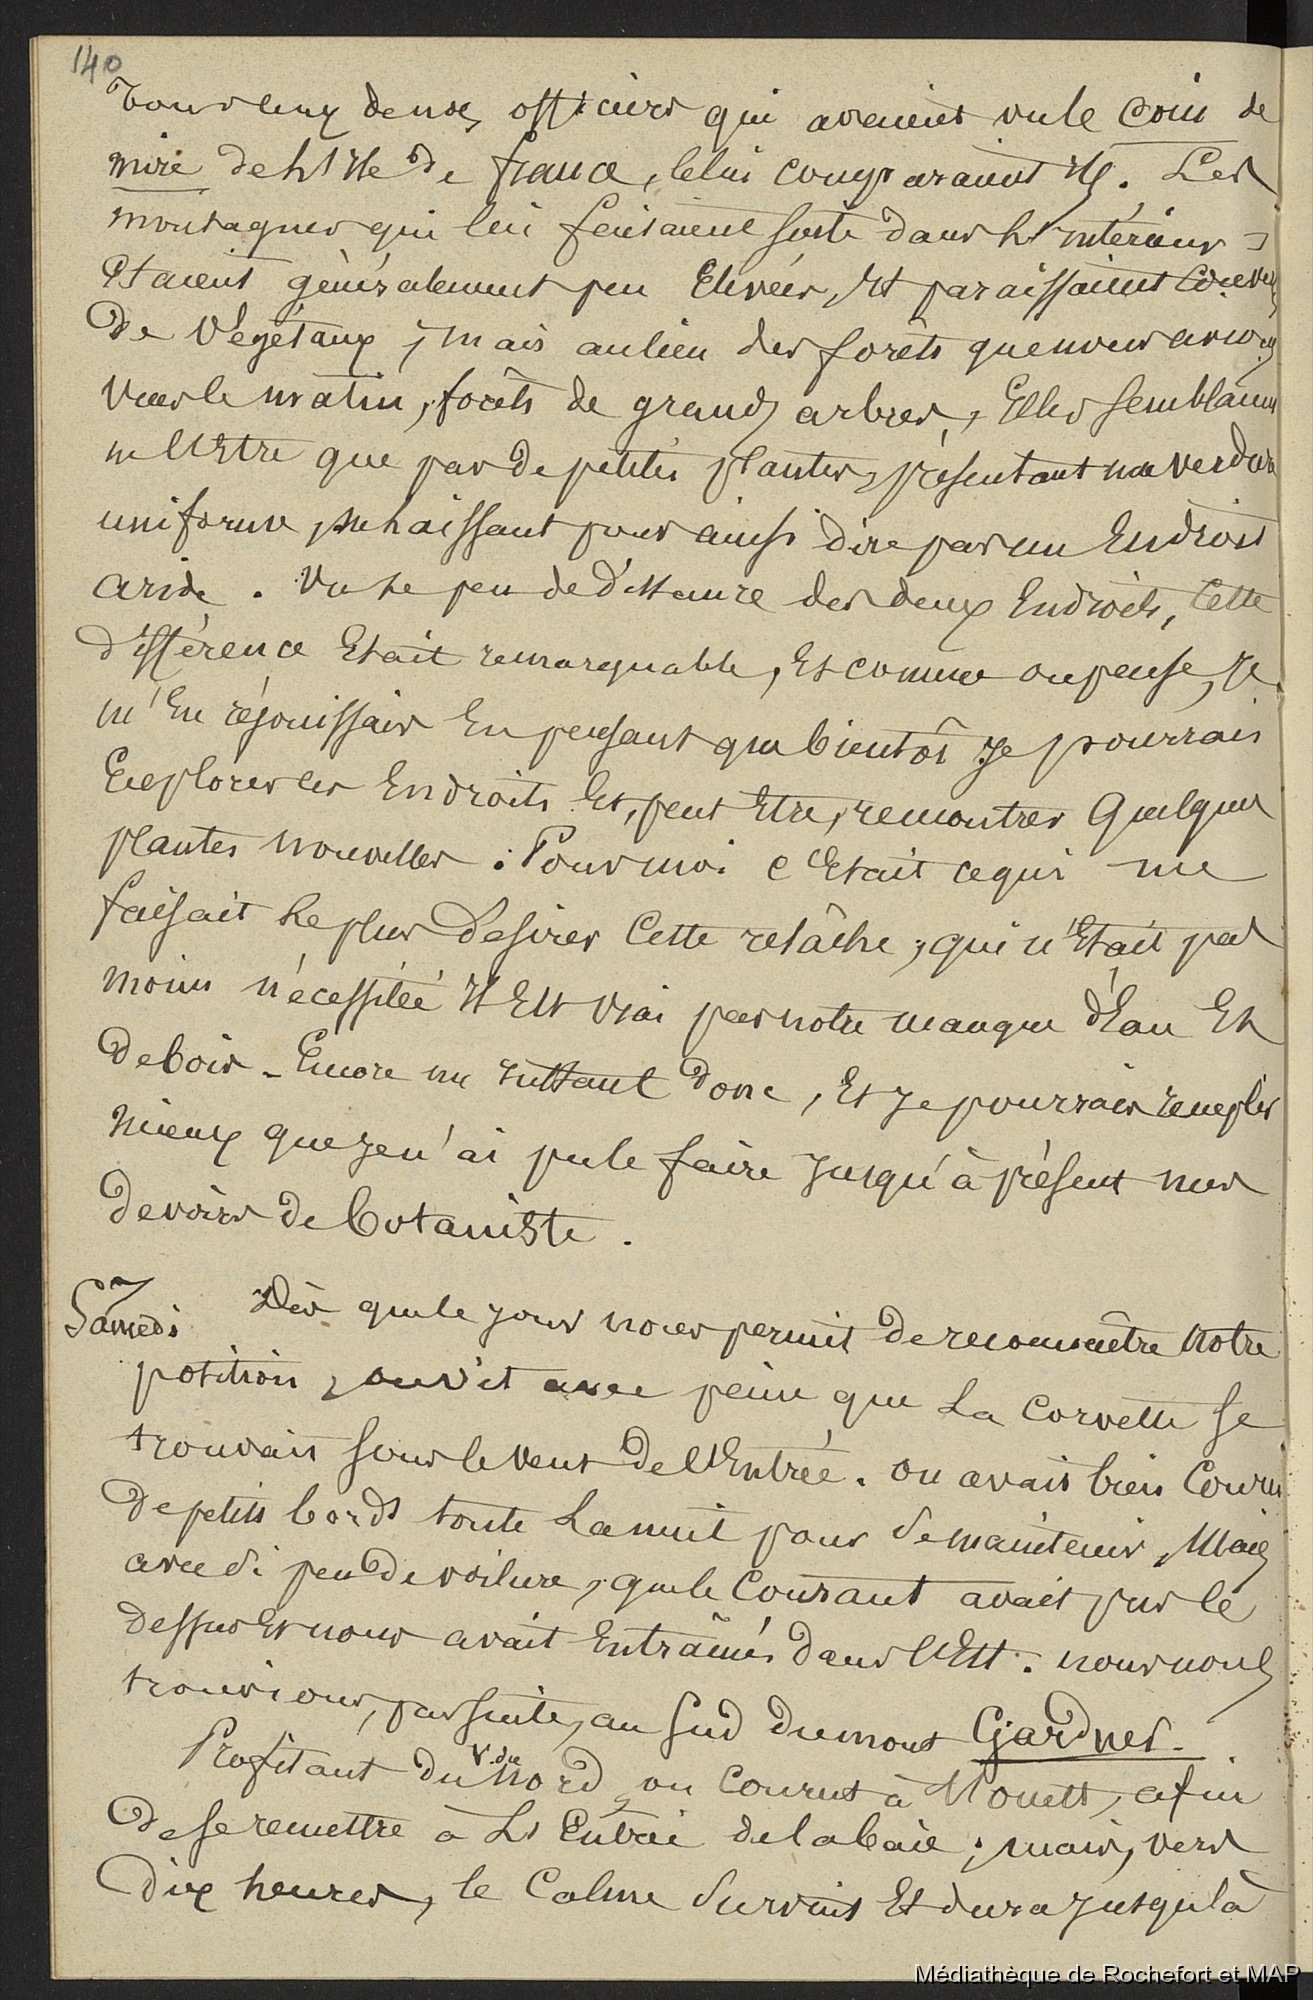 140
Tous ceux de nos officiers qui avaient vu le Coin de
mire de l'Ile de france, le lui comparaient ts. Les
montagnes qui lui faisaient suite dans l'intérieur
Etaient généralement peu Elevées, Et paraissaient couvertes
De Végétaux ; mais au lieu des forêts que nous avions
vues le matin, forêts de grands arbres, Elles semblaient
ne l'Etre que par De petites plantes, présentant une verdure
uniforme, se haissant pour ainsi dire par un Endroit
aride. Vu le peu de Distance des deux Endroits, Cette
différence Etait remarquable, Et comme on pense, Je
m'En réjouissais En pensant que bientôt Je pourrais
Explorer ces Endroits Et, peut Etre, rencontrer Quelques
plantes nouvelles. Pour moi c'Etait ce qui me
faisait Le plus Desirer Cette relâche, qui n'Etait pas
moins nécessitée Il Est vrai par notre manque d'Eau Et
De bois - Encore un Instant Donc, Et Je pourrais remplir
Mieux que Je n'ai pu le faire Jusqu'à présent mes
Devoirs De botaniste.
7
Samedi Dès que le jour nous permit De reconnaître Notre
position, on vit avec peine que La Corvette se
trouvait sous le vent De l'Entrée. On avait bien Couru
De petits bords toute La nuit pour se maintenir, Mais
avec si peu De voilure, que le Courant avait pris le
dessus Et nous avait Entraînés Dans l'Est. Nous nous
trouvions, par suite, au Sud Du mont Gardner.
Profitant du V. du Nord, on Courut à l'Ouest, afin
De se remettre à L'Entrée de la baie ; mais, vers
Dix heures, le Calme Survint Et dura Jusqu'à
Médiathèque de Rochefort et MAP